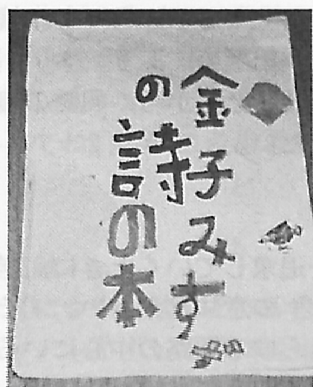 金子みす
の詩の本